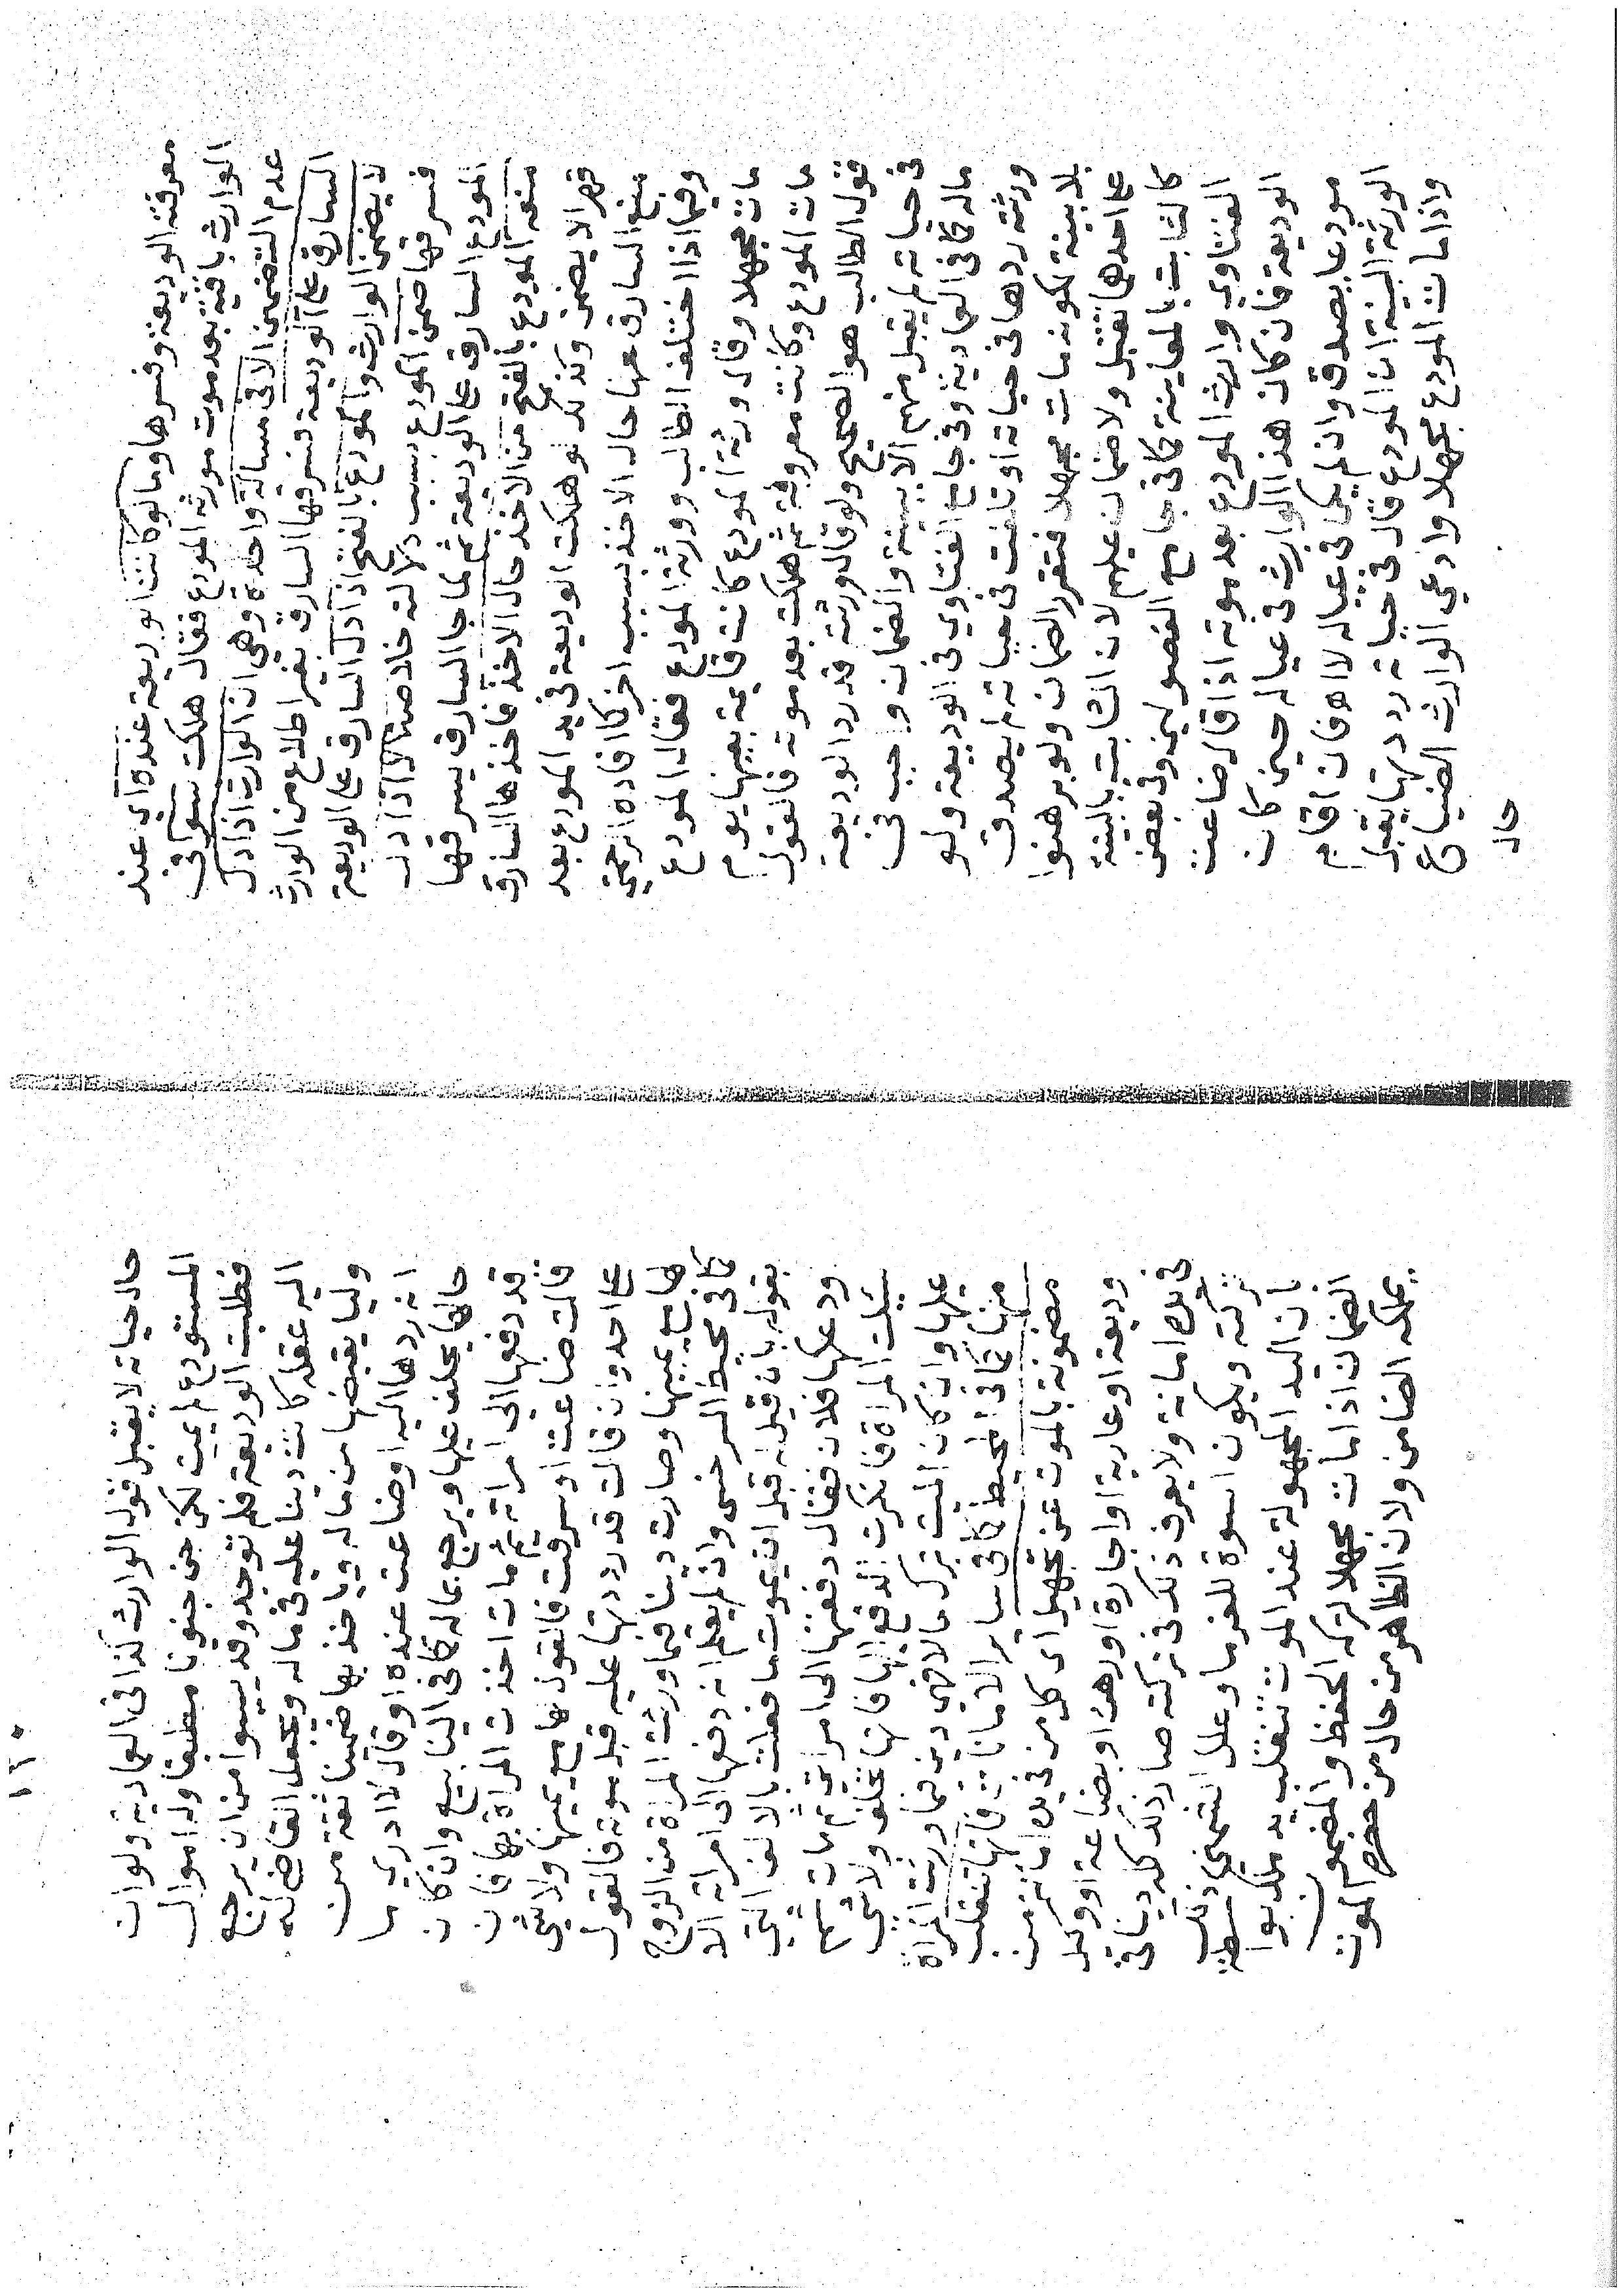 معرفته الوديعة وفسرها وما لو كانت الوديعة عنده اي عند
الوارث باقية بعد موت مورثه المودع فقال هلكت سواء في
عدم التضمين الا في مسالة واحدة وهي ان الوارث اذا دل
السارق على الوديعة فسرقها السارق بغير اطلاع من الوارث
لا يضمن الوارث والمودع بالفتح اذا دل السارق على الوديعة
فسرقها ضمن المودع بسبب دلالته خلاصة الا اذا دل
المودع السارق على الوديعة ثم لما جا السارق يسرقها
منعه المودع بالفتح من الاخذ حال الاخذ فاخذها السارق
قهرا لا يضمن وكذلك لو هلكت الوديعة في يد المودع بعد
منع السارق عنها حال الاخذ بسبب اخر كما افاده الرحمتي
وفيما اذا اختلف الطالب وورثة المودع فقال المودع
مات مجهلا وقال ورثة المودع كانت قايمة بعينها يوم
مات المودع وكانت معروفة ثم هلكت بعد موته فالقول
قول الطالب هو الصحيح ولو قال ورثته قد رد الوديعة
في حياته لم يقبل منهم الا ببينة والضمان واجب في
ماله كما في العمادية وفي جامع الفتاوي في الوديعة ولو
ورثته ردها في حياته او تلفت في حياته لم يصدق
بلا بينة لكونه مات مجهلا فتقرر الضمان ولو برهنوا
على احدهما تقبل ولا ضمان عليهم لان الثابت بالبينة
كالثابت بالمعاينة كما في جامع الفصولين وفي بعض
الفتاوي وارث المودع بعد موته اذا قال ضاعت
الوديعة فان كان هذا الوارث في عياله حين كان
مودعا يصدق وان لم يكن في عياله لا هفان اقام
الورثة البينة ان المودع قال في حياته رددتها يقبل
واذا مات المودع مجهلا وادعى الوارث الضياع
حال
١٢٠
حال حياته لا يقبل قول الوارث كذا في العمادية ولو ان
المستودع لم يمت لكن جن جنونا مطبقا وله اموال
فطلبت الوديعة فلم توجد وقد يئسوا من ان يرجع
اليه عقله كانت دينا عليه في ماله ويجعل القاضي له
وليا يقبضها من ماله وياخذ بها ضمينا ثقة من
انه ردها اليه او ضاعت عنده او قال لا ادري ما
حالها يحلف عليها ويرجع بماله كما في الينابيع وان كان
قد دفعها الى امراته ثم مات اخذت المراة بها فان
قالت ضاعت او سرقت فالقول لها مع يمينها ولا شي
على احد وان قالت قد رددتها عليه قبل موته فالقول
لها مع يمينها وصارت دينا فيما ورثت المراة من الزوج
كما في محيط السرخسي وان لم يعلم انه دفعها الى امراته الا
بقوله بان قيل له قبل ان يموت ما فعلت بالالف التي
ودعكها فلان فقال دفعتها الى امراتي ثم مات ثم
سئلت المراة فانكرت الدفع اليها فانها تحلف ولا شي
عليها وان كان الميت ترك مالا فهي دين فيما ورثت المراة
منه كما في المحيط كما في سائر الامانات فانها تنقلب
مضمونة بالموت عن تجهيل اي كل من في يده امانة من
وديعة او عارية او اجارة او رهن او بضاعة او وكل
في يده امانة ولا يعرف ذلك في تركته صار ذلك كله دينا في
تركته ويكون اسوة للغرما وعلل التمرتاشي ذلك
بان اليد المجهولة عند الموت تنقلب يد ملك بواسطة
الضمان اذا مات مجهلا لتركه الحفظ والمضمون
يملكه الضامن ولان الظاهر من حال من حضره الموت